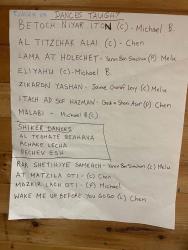 DANCES TAUGHT
BETOCH NIYAR ITON (C) - Michael B.
AL TITZCHAK ALAI (C) - Chen
LAMA AT HOLECHET - Yaron Ben Simchon (P) Melia
ELIYAHU (C) - Michael B.
ZIKARON YASHAN - (C) Melia
ITACH AD SOF HAZMAN - Gadi + Shani (P) Chen
MALABI - Michael B (C)
SHIKER DANCES
AL TESHATE BEAHAVA
ACHAKE LECHA
BECHEV ESH
RAK SHETIHIYE SAMEACH - Yaron Ben Simchon (C) Melia
AT MATZILA OTI (C) Chen
MAZKIR LACH OTI - (P) Michael
WAKE ME UP BEFORE YOU GOGO (L) Chen